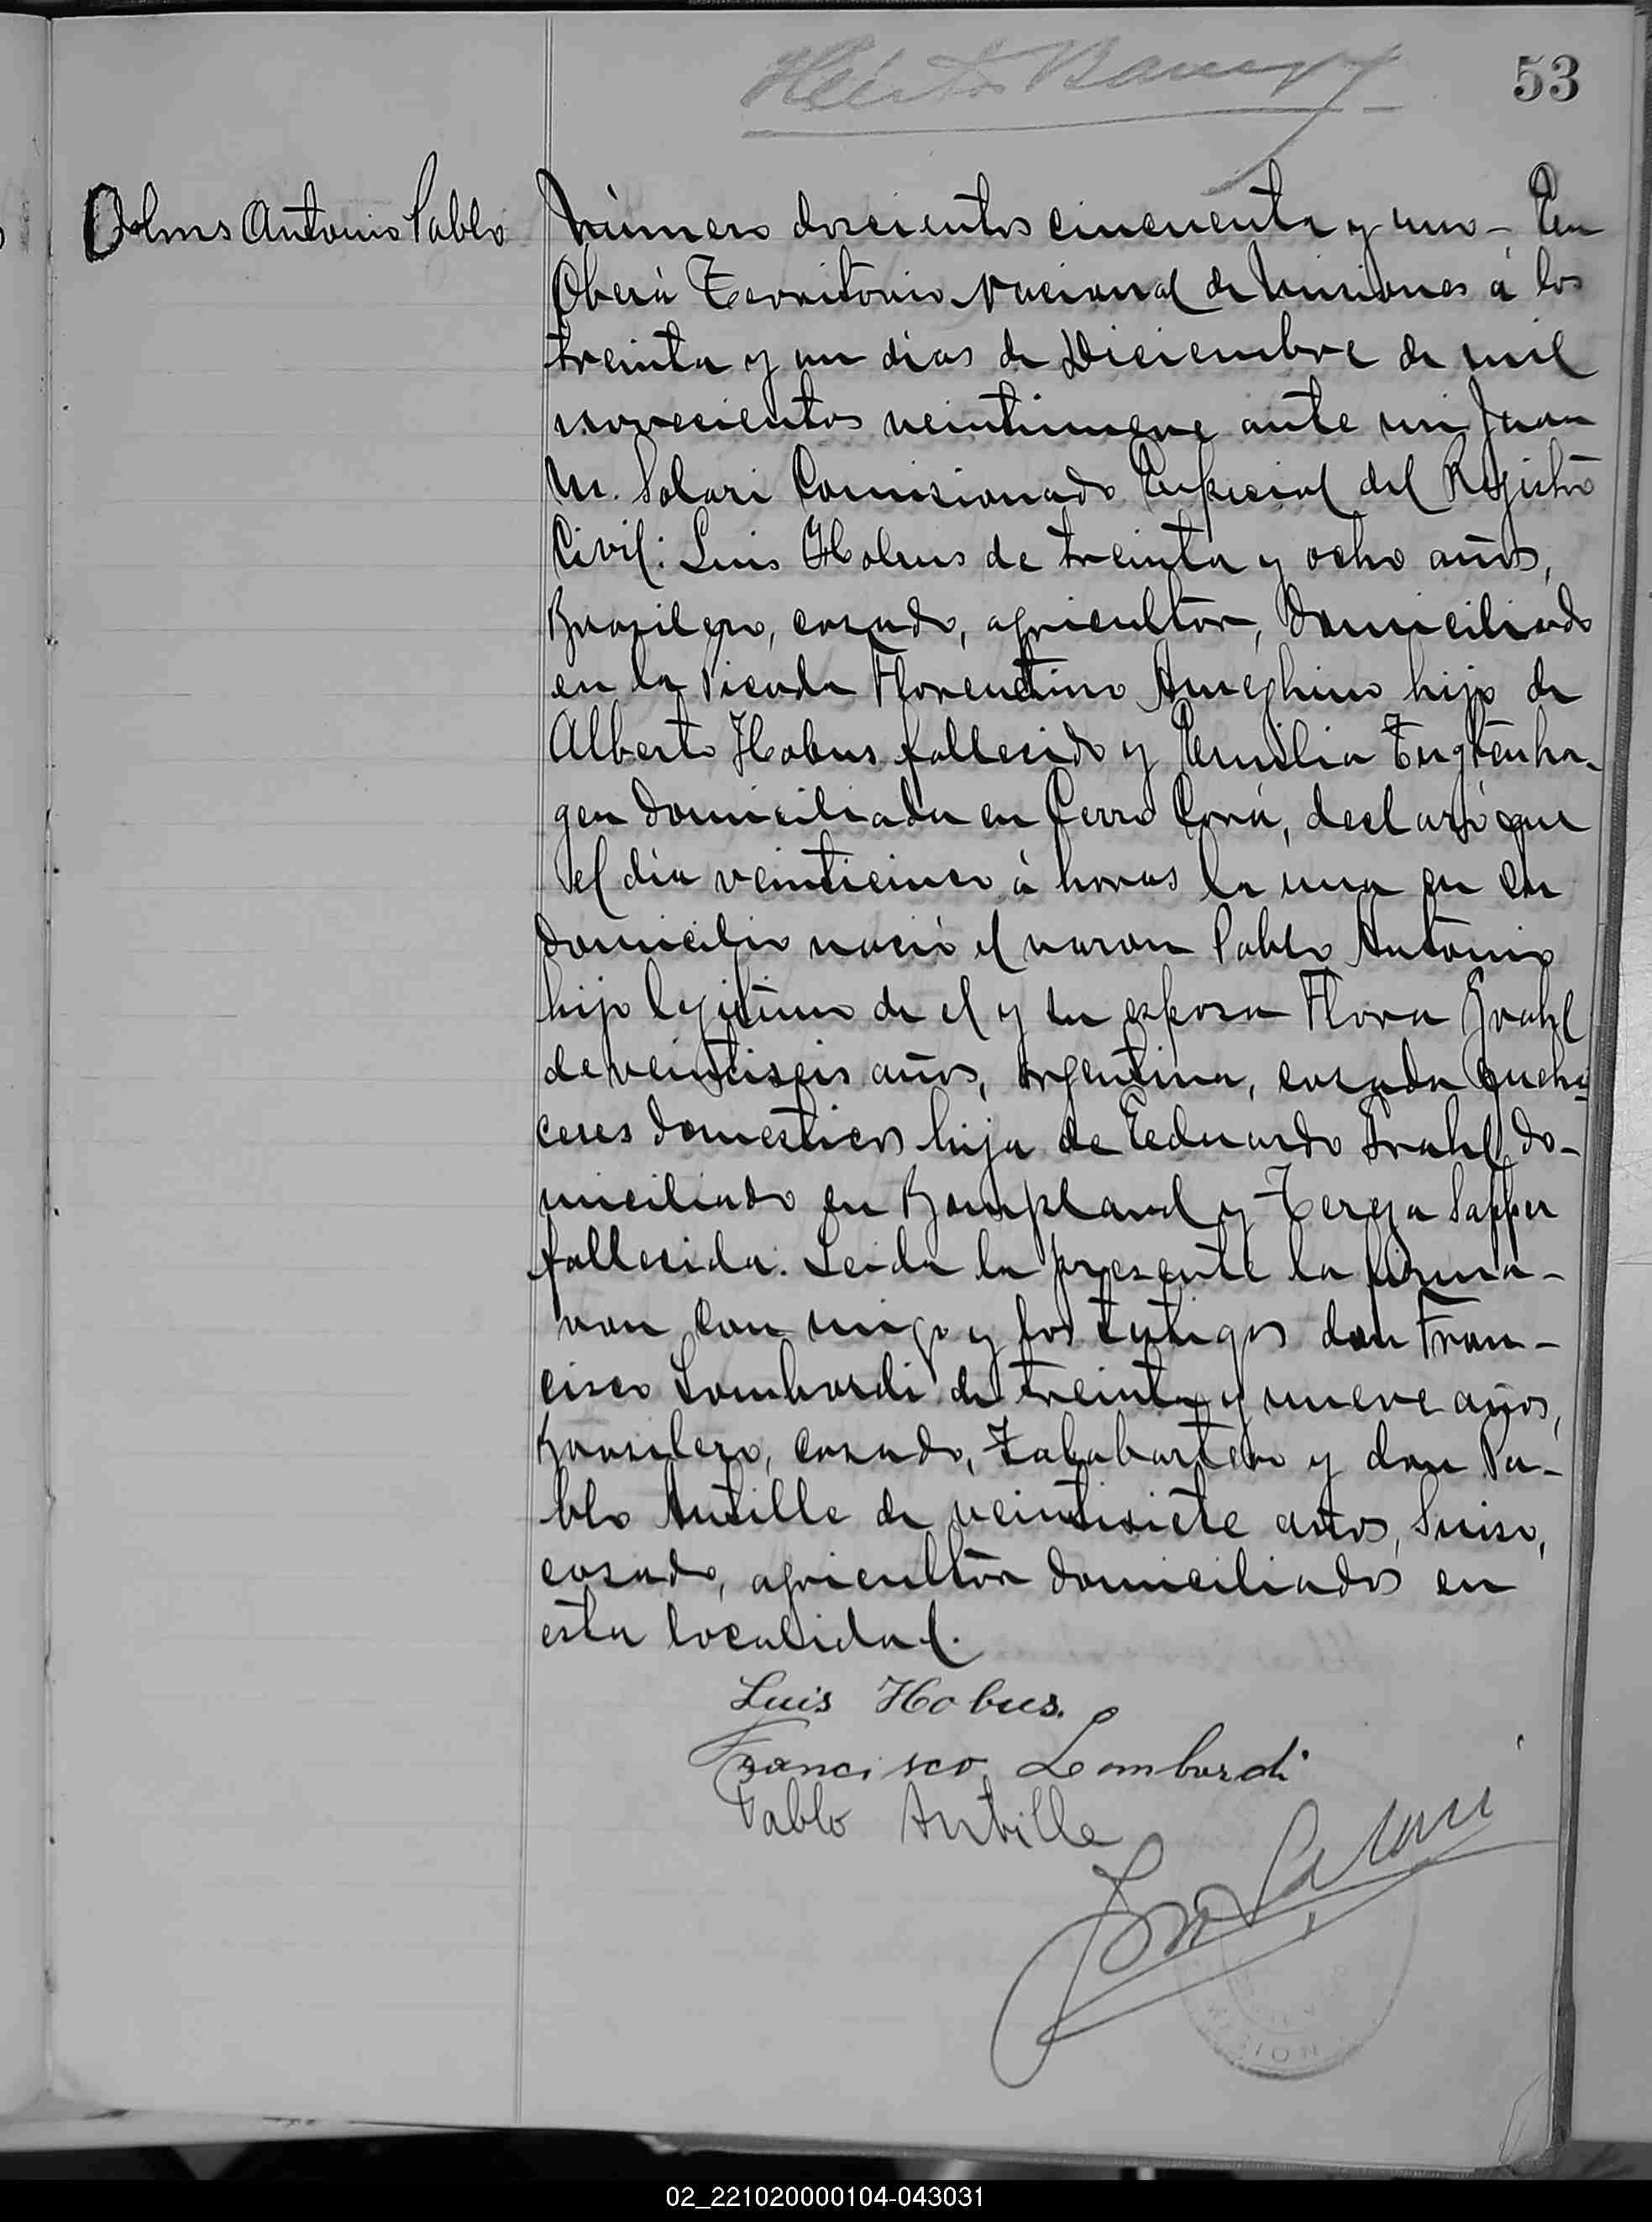 53
Antonio Pablo
Número doscientos cincuenta y uno - En
Oberá Territorio Nacional de Misiones á los
treinta y un dias de Diciembre de mil
novecientos veintinueve ante mi Juan
M. Solari Comisionado Especial del Registro
Civil: Luis Hobus de treinta y ocho años,
Brasilero, casado, agricultor, domiciliado
en la Picada Florentino Ameghino hijo de
Alberto Hobus fallecido y Emilia
gen domiciliada en Cerro Corá, declaró que
el dia veinticinco á horas la una en su
domicilio nació el varon Pablo Antonio
hijo legitimo de el y su esposa Flora
de veintiseis años, argentina, casada queha-
ceres domesticos hija de Eduardo do-
miciliado en Bompland y Tereza Sapper
fallecida. Leida la presente la firma-
ron con migo y los testigos don Fran-
cisco Lombardi de treinta y nueve años,
Brasilero, casado, Talabartero y don Pa-
blo Antille de veintisiete años, Suiso,
casado, agricultor domiciliados en
esta localidad.
Luis Hobus.
Francisco Lombardi
Pablo Antille
02_221020000104-043031